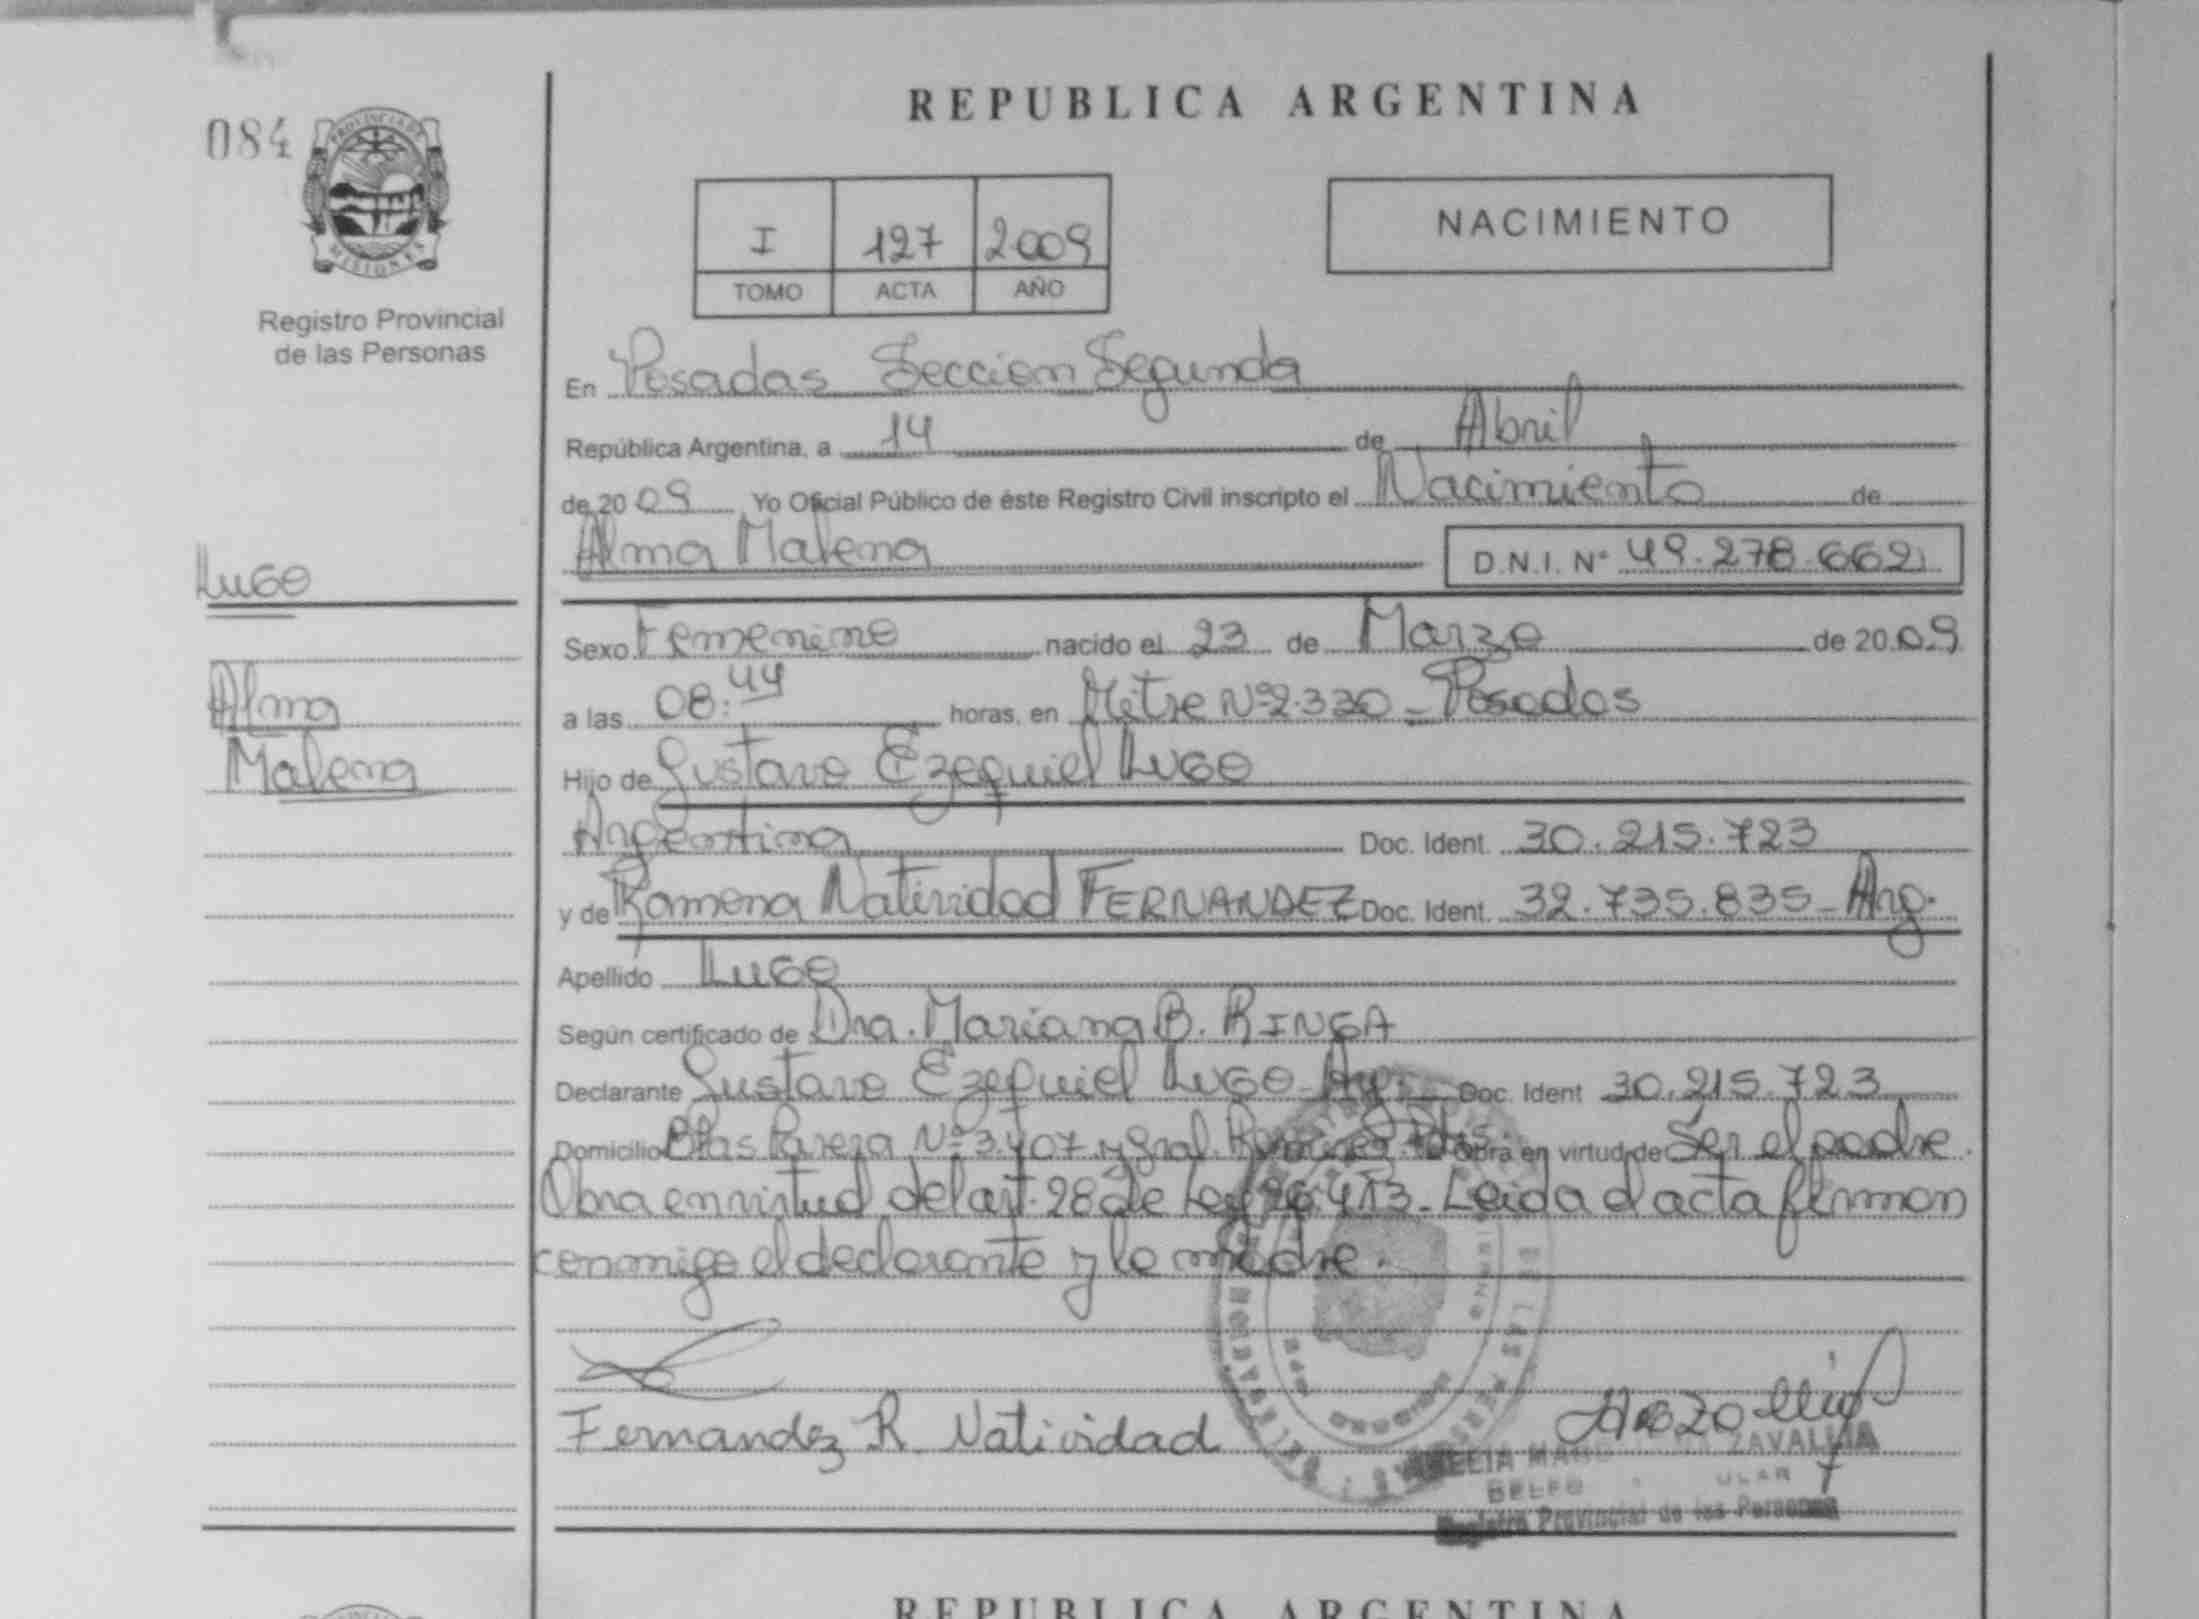 REPUBLICA ARGENTINA
084
PROVINCIA DE
MISIONES
Registro Provincial
de las Personas
I 127 2009
TOMO ACTA AÑO
NACIMIENTO
En Posadas Seccion Segunda
República Argentina, a 14 de Abril
de 2009 Yo Oficial Público de éste Registro Civil inscripto el Nacimiento de
Alma Malena D.N.I. Nº 49.278.662
LUGO
Alma
Malena
Sexo Femenino nacido el 23 de Marzo de 2009
a las 08:44 horas, en Mitre Nº 2.330 - Posadas
Hijo de Gustavo Ezequiel LUGO
Argentina Doc. Ident. 30.215.723
y de Ramona Natividad FERNANDEZ Doc. Ident. 32.735.835 - Arg.
Apellido LUGO
Según certificado de Dra. Mariana B. RINGA
Declarante Gustavo Ezequiel LUGO - Arg. Doc. Ident 30.215.723
Domicilio Blas Parera Nº 3.407 y Gral. Obra en virtud de Ser el padre.
Obra en virtud del art. 28 de Ley 26.413 - Leida el acta firman
conmigo el declarante y la madre.
Fernandez R. Natividad
ZAVALLIA
Registro Provincial de las Personas
REPUBLICA ARGENTINA